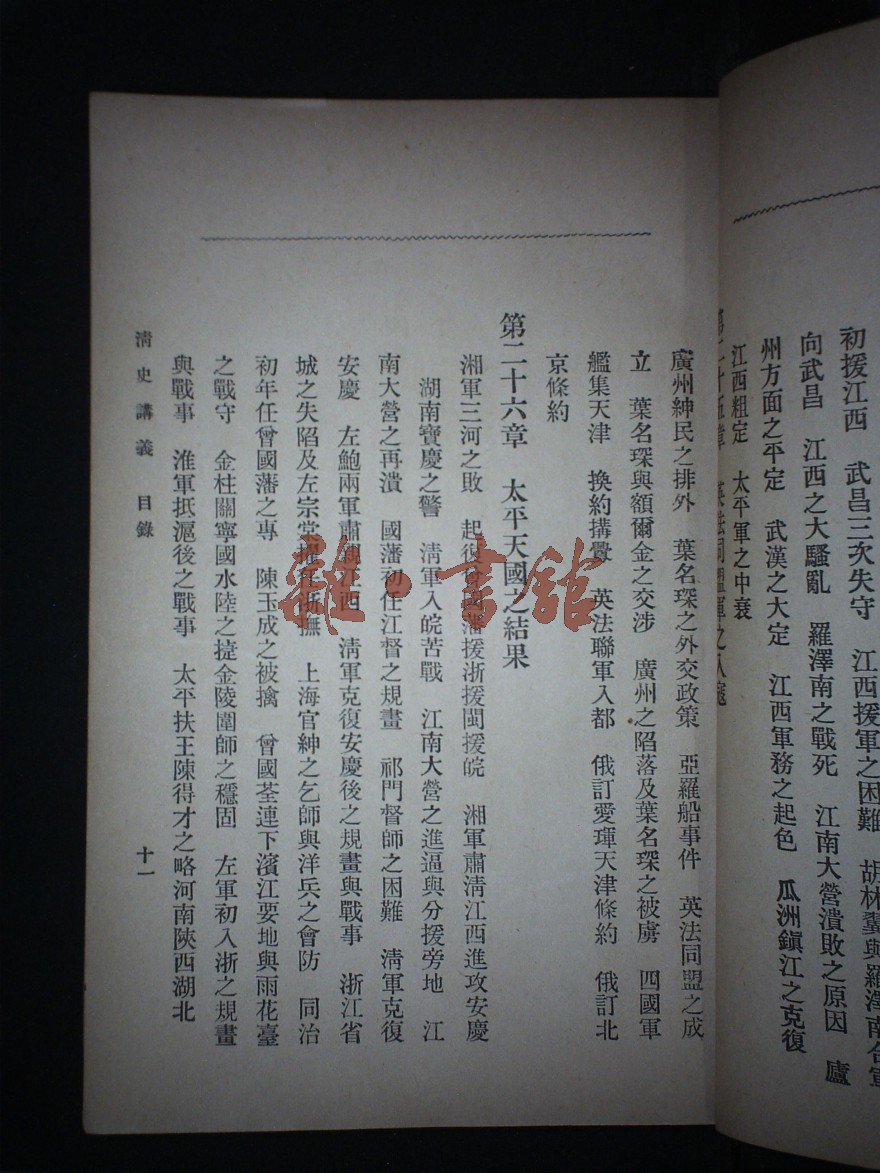 初援江西　武昌三次失守　江西援軍之困難　胡林翼與羅澤南合軍
向武昌　江西之大騷亂　羅澤南之戰死　江南大營潰敗之原因　廬
州方面之平定　武漢之大定　江西軍務之起色　瓜洲鎮江之克復
江西粗定　太平軍之中衰
第二十五章　英法同盟軍之入寇
廣州紳民之排外　葉名琛之外交政策　亞羅船事件　英法同盟之成
立　葉名琛與額爾金之交涉　廣州之陷落及葉名琛之被虜　四國軍
艦集天津　換約搆釁　英法聯軍入都　俄訂愛琿天津條約　俄訂北
京條約
第二十六章　太平天國之結果
湘軍三河之敗　起復曾國藩援浙援閩援皖　湘軍肅清江西進攻安慶
湖南寶慶之警　清軍入皖苦戰　江南大營之進逼與分援旁地　江
南大營之再潰　國藩初任江督之規畫　祁門督師之困難　清軍克復
安慶　左鮑兩軍肅清江西　清軍克復安慶後之規畫與戰事　浙江省
城之失陷及左宗棠擢任浙撫　上海官紳之乞師與洋兵之會防　同治
初年任曾國藩之專　陳玉成之被擒　曾國荃連下濱江要地與雨花臺
之戰守　金柱關寧國水陸之捷金陵圍師之穩固　左軍初入浙之規畫
與戰事　淮軍抵滬後之戰事　太平扶王陳得才之略河南陝西湖北
清史講義　目錄　十一
雜·書館